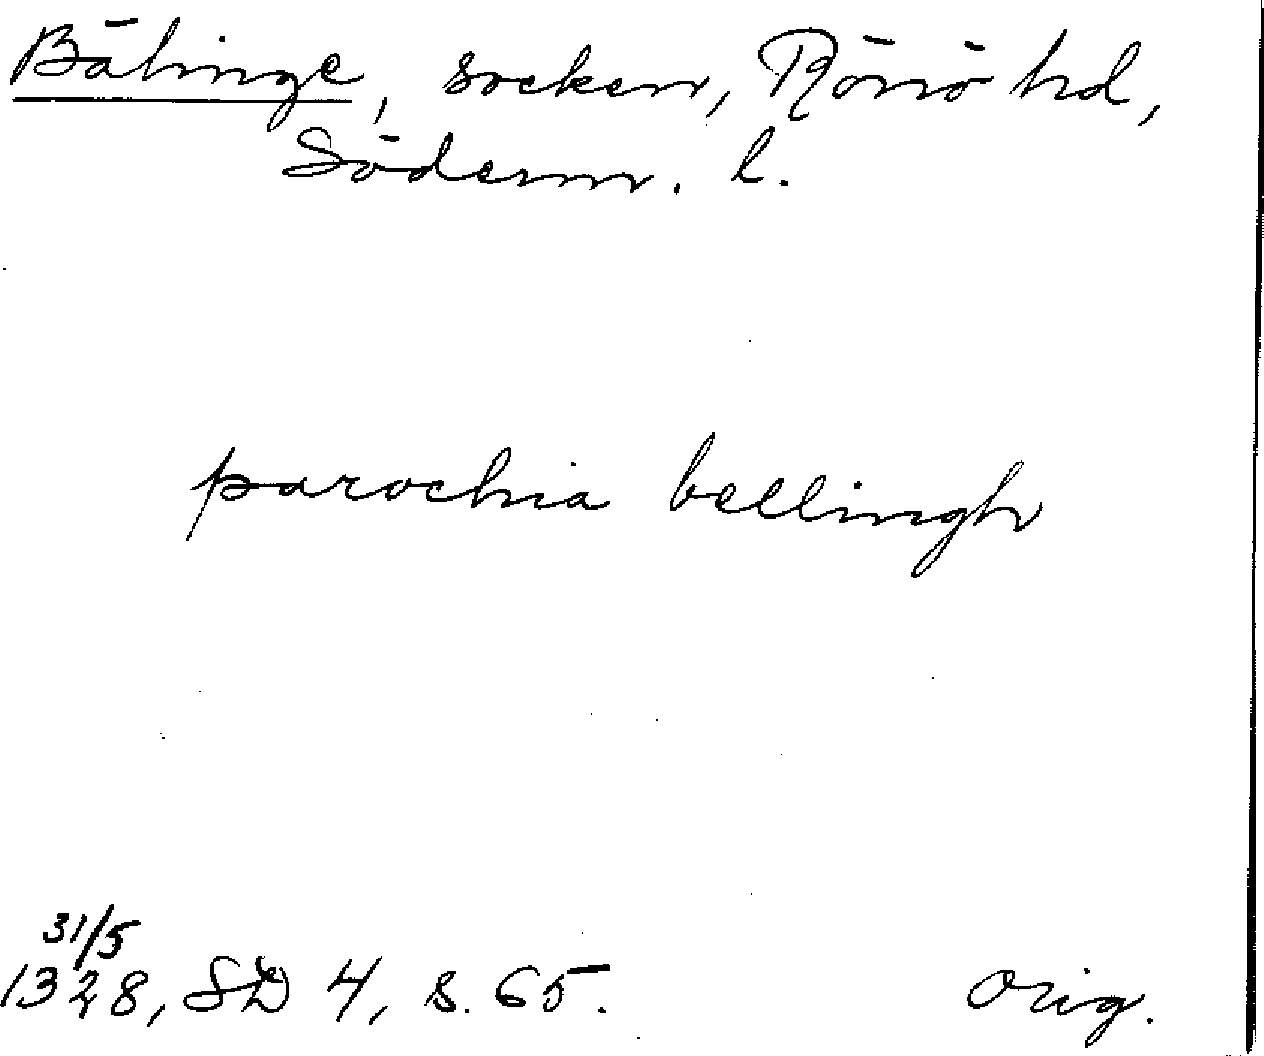 Bälinge, socken, Rönö hd,
Söderm. l.
parochia bellingh
31/5
1328, SD 4, s. 65.
orig.